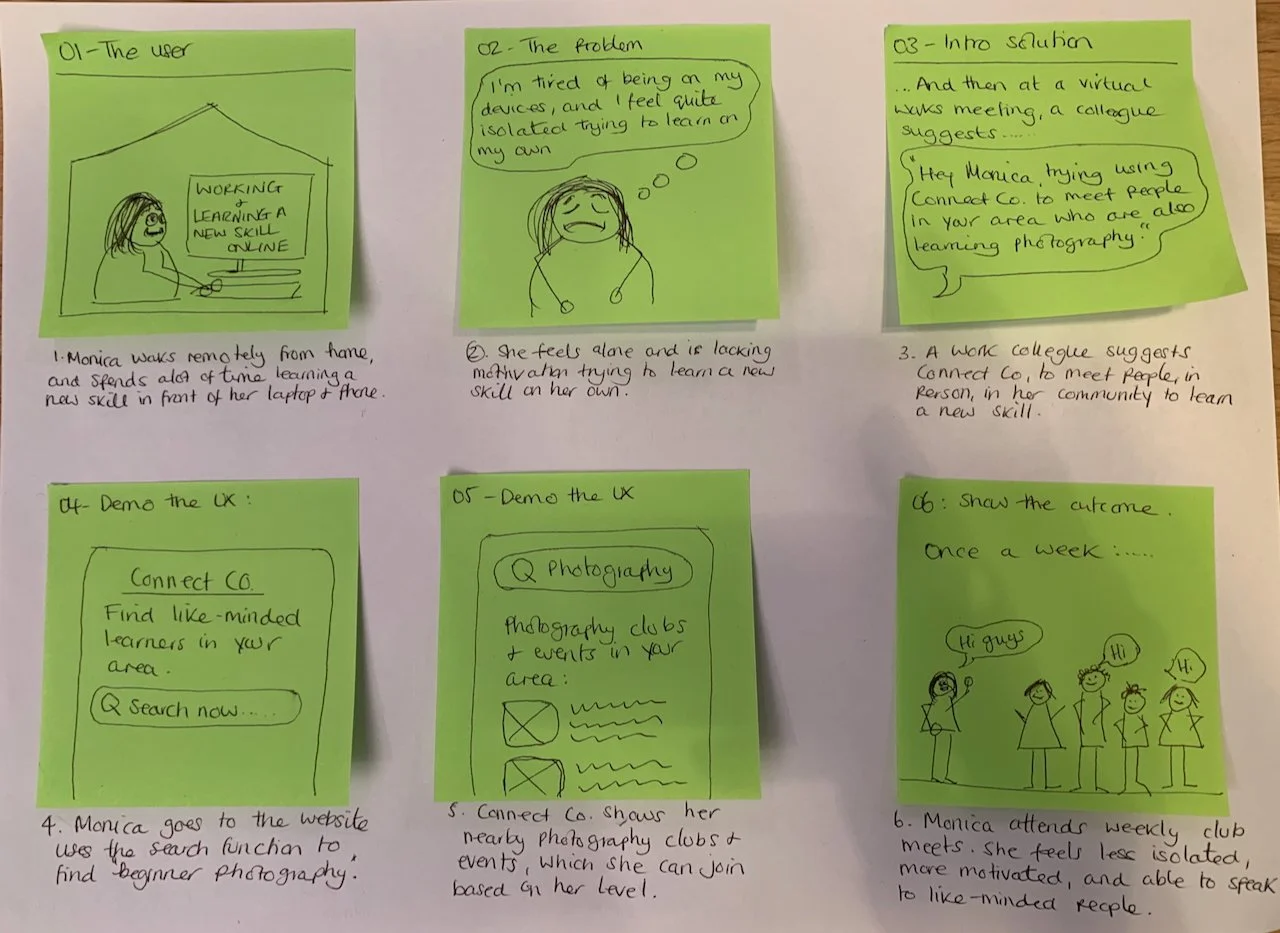 01-The user
WORKING
&
LEARNING A
NEW SKILL
ONLINE
1. Monica works remotely from home,
and spends alot of time learning a
new skill in front of her laptop & phone.
02 - The Problem
I'm tired of being on my
devices, and I feel quite
isolated trying to learn on
my own
2. She feels alone and is lacking
motivation trying to learn a new
skill on her own.
03 - Intro solution
...And then at a virtual
works meeting, a colleague
suggests......
"Hey Monica, trying using
Connect Co. to meet people
in your area who are also
learning photography."
3. A work collegue suggests
Connect Co, to meet people, in
person, in her community to learn
a new skill.
04- Demo the UX:
Connect CO.
Find like-minded
learners in your
area.
Search now.....
4. Monica goes to the website
uses the search function to
find beginner photography.
05 - Demo the UX
Photography
Photography clubs
& events in your
area:
5. Connect Co. shows her
nearby photography clubs &
events, which she can join
based on her level.
06: Show the outcome.
Once a week:.....
Hi guys
Hi
Hi
6. Monica attends weekly club
meets. She feels less isolated,
more motivated, and able to speak
to like-minded people.